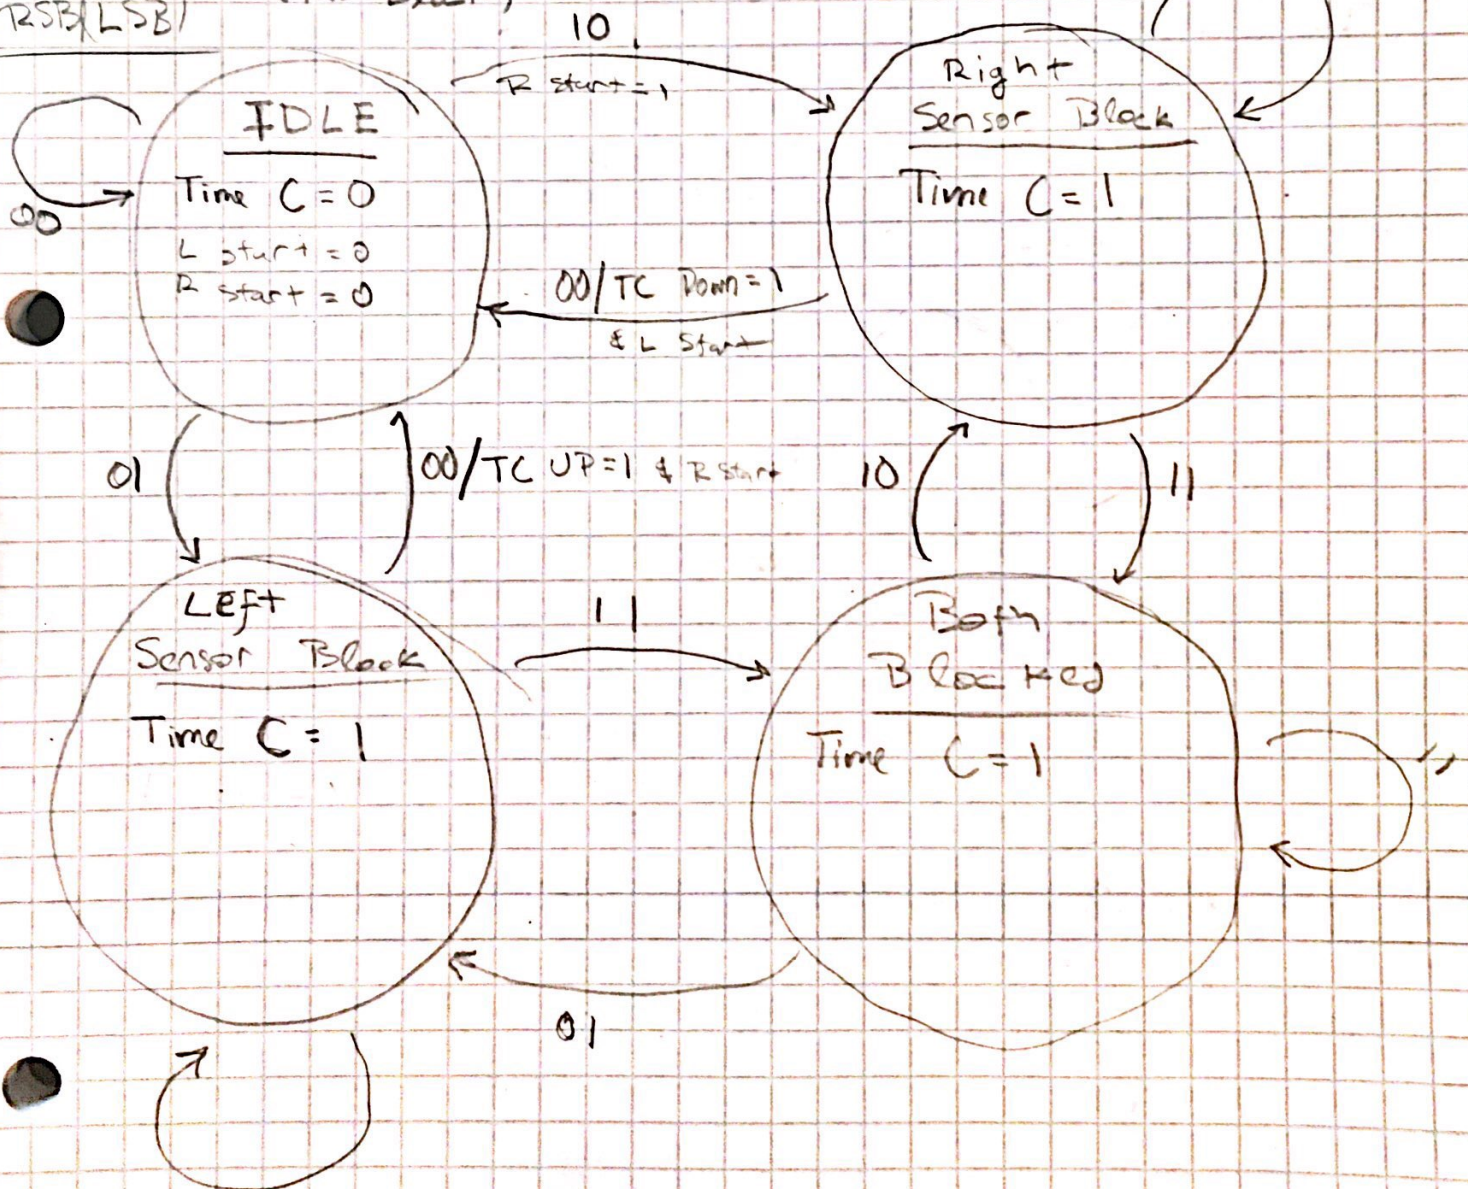 RSB(LSB)
10
R start=1
IDLE
Time C=0
L start=0
R start=0
00
Right
Sensor Block
Time C=1
00/TC Down=1
& L Start
01
00/TC UP=1 & R Start
10
11
Left
Sensor Block
Time C=1
11
Both
Blocked
Time C=1
01